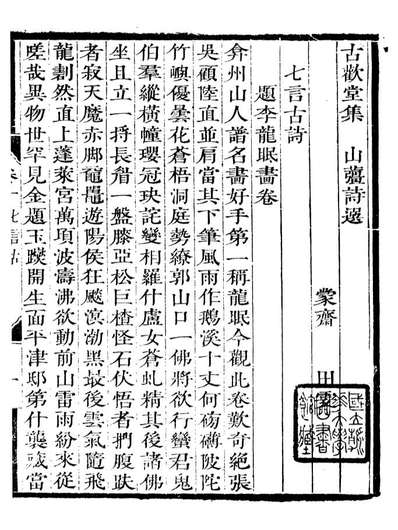 古歡堂集　山薑詩選
蒙齋　田
七言古詩
題李龍眠畫卷
弇州山人譜名畫好手第一稱龍眠今觀此卷歎奇絕張
吳顧陸直並肩當其下筆風雨作鵝溪十丈何磅礴陂陀
竹嶼優曇花蒼梧洞庭勢繚郭山口一佛將欲行蠻君鬼
伯羣縱橫幢瓔冠玦詫變相羅什盧女蒼虬精其後諸佛
坐且立一捋長眉一盤膝亞松巨楂怪石伏悟者捫腹趺
者寂天魔赤脚黿鼉遊陽侯狂飈溟渤黑最後雲氣隨飛
龍劃然直上蓬萊宮萬頃波濤沸欲動前山雷雨紛來從
嗟哉異物世罕見金題玉躞開生面平津邸第什襲藏當